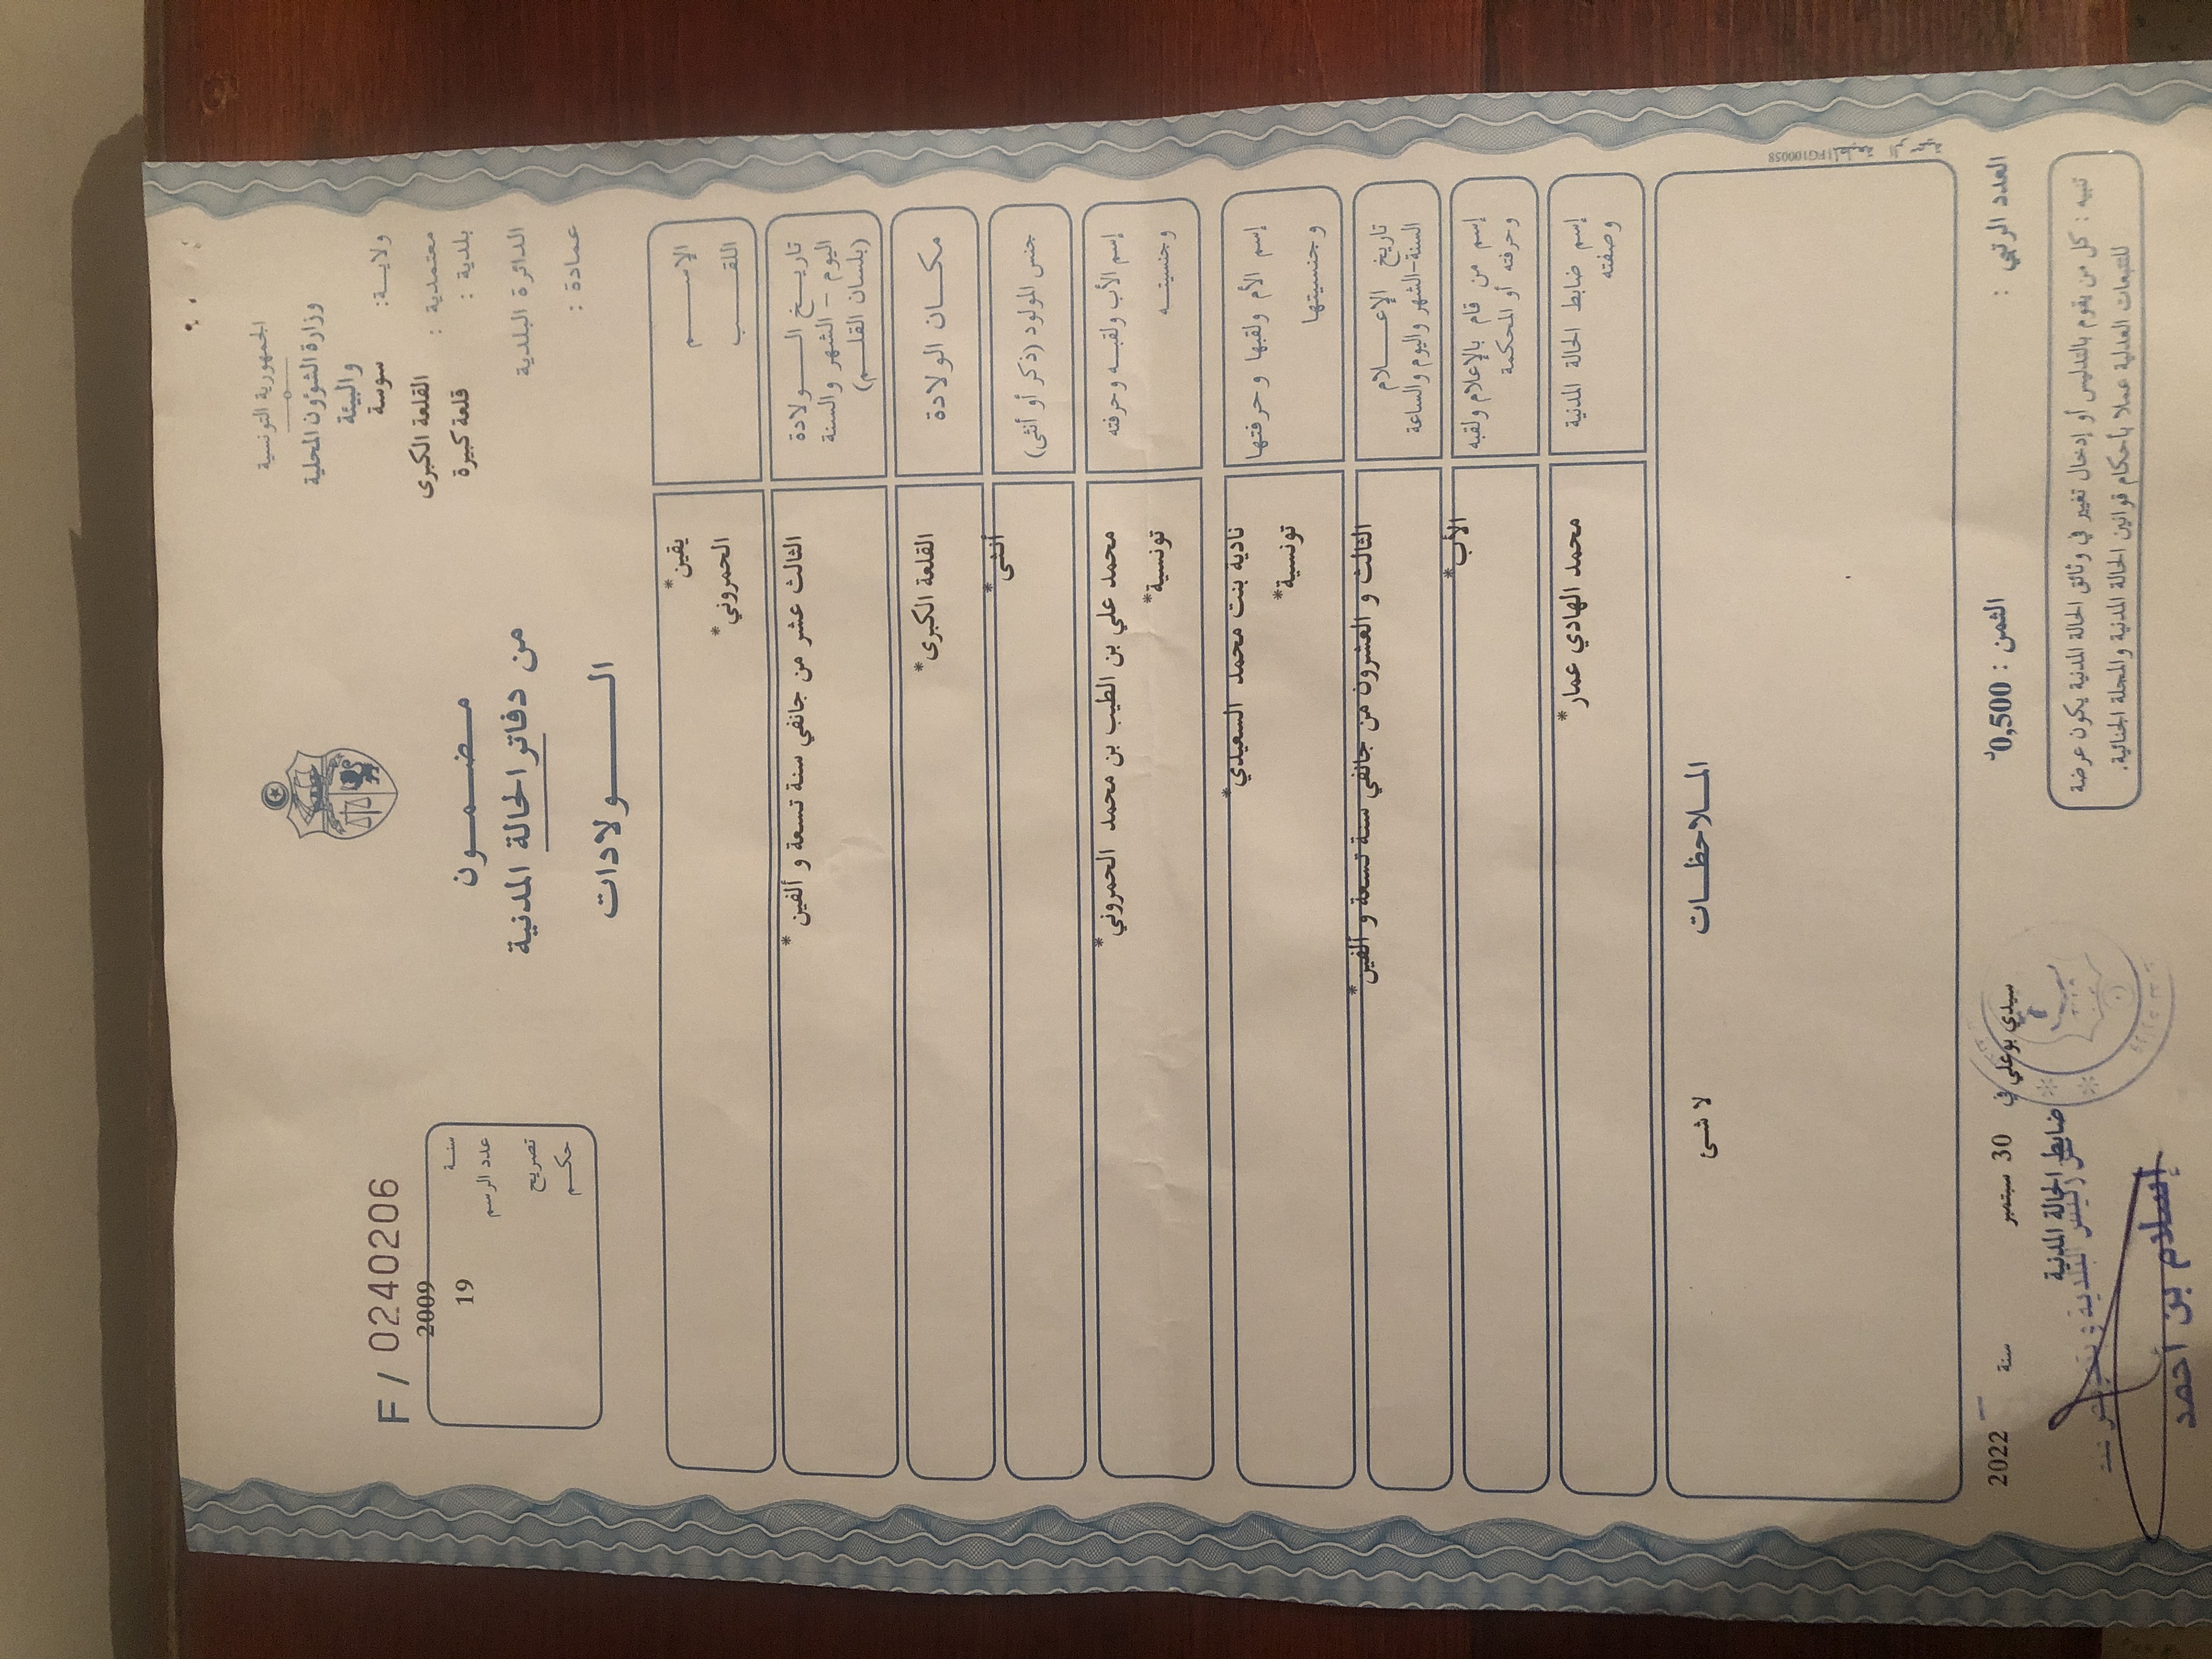 الجمهورية التونسية
وزارة الشؤون المحلية
والبيئة
ولاية: سوسة
معتمدية : القلعة الكبرى
بلدية : قلعة كبيرة
الدائرة البلدية
عمادة :
مضمون
من دفاتر الحالة المدنية
الولادات
F / 0240206
سنة 2009
عدد الرسم 19
تصريح
حكم
الإسم يقين*
اللقب الحمروني*
تاريخ الولادة
اليوم - الشهر والسنة
(بلسان القلم)
الثالث عشر من جانفي سنة تسعة و ألفين*
مكان الولادة القلعة الكبرى*
جنس المولود (ذكر أو أنثى) أنثى*
إسم الأب ولقبه وحرفته محمد علي بن الطيب بن محمد الحمروني*
وجنسيته تونسية*
إسم الأم ولقبها وحرفتها نادية بنت محمد السعيدي*
وجنسيتها تونسية*
تاريخ الإعلام
السنة-الشهر واليوم والساعة
الثالث و العشرون من جانفي سنة تسعة و ألفين*
إسم من قام بالإعلام ولقبه
وحرفته أو المحكمة
الأب*
إسم ضابط الحالة المدنية
وصفته
محمد الهادي عمار*
الملاحظات
لا شئ
FG100058
العدد الرتبي :
الثمن : 0,500د
سيدي بوعلي في 30 سبتمبر سنة 2022
تنبيه : كل من يقوم بالتدليس أو إدخال تغيير في وثائق الحالة المدنية يكون عرضة
للتتبعات العدلية عملا بأحكام قوانين الحالة المدنية والمجلة الجنائية.
ضابط الحالة المدنية
إسلام بن أحمد